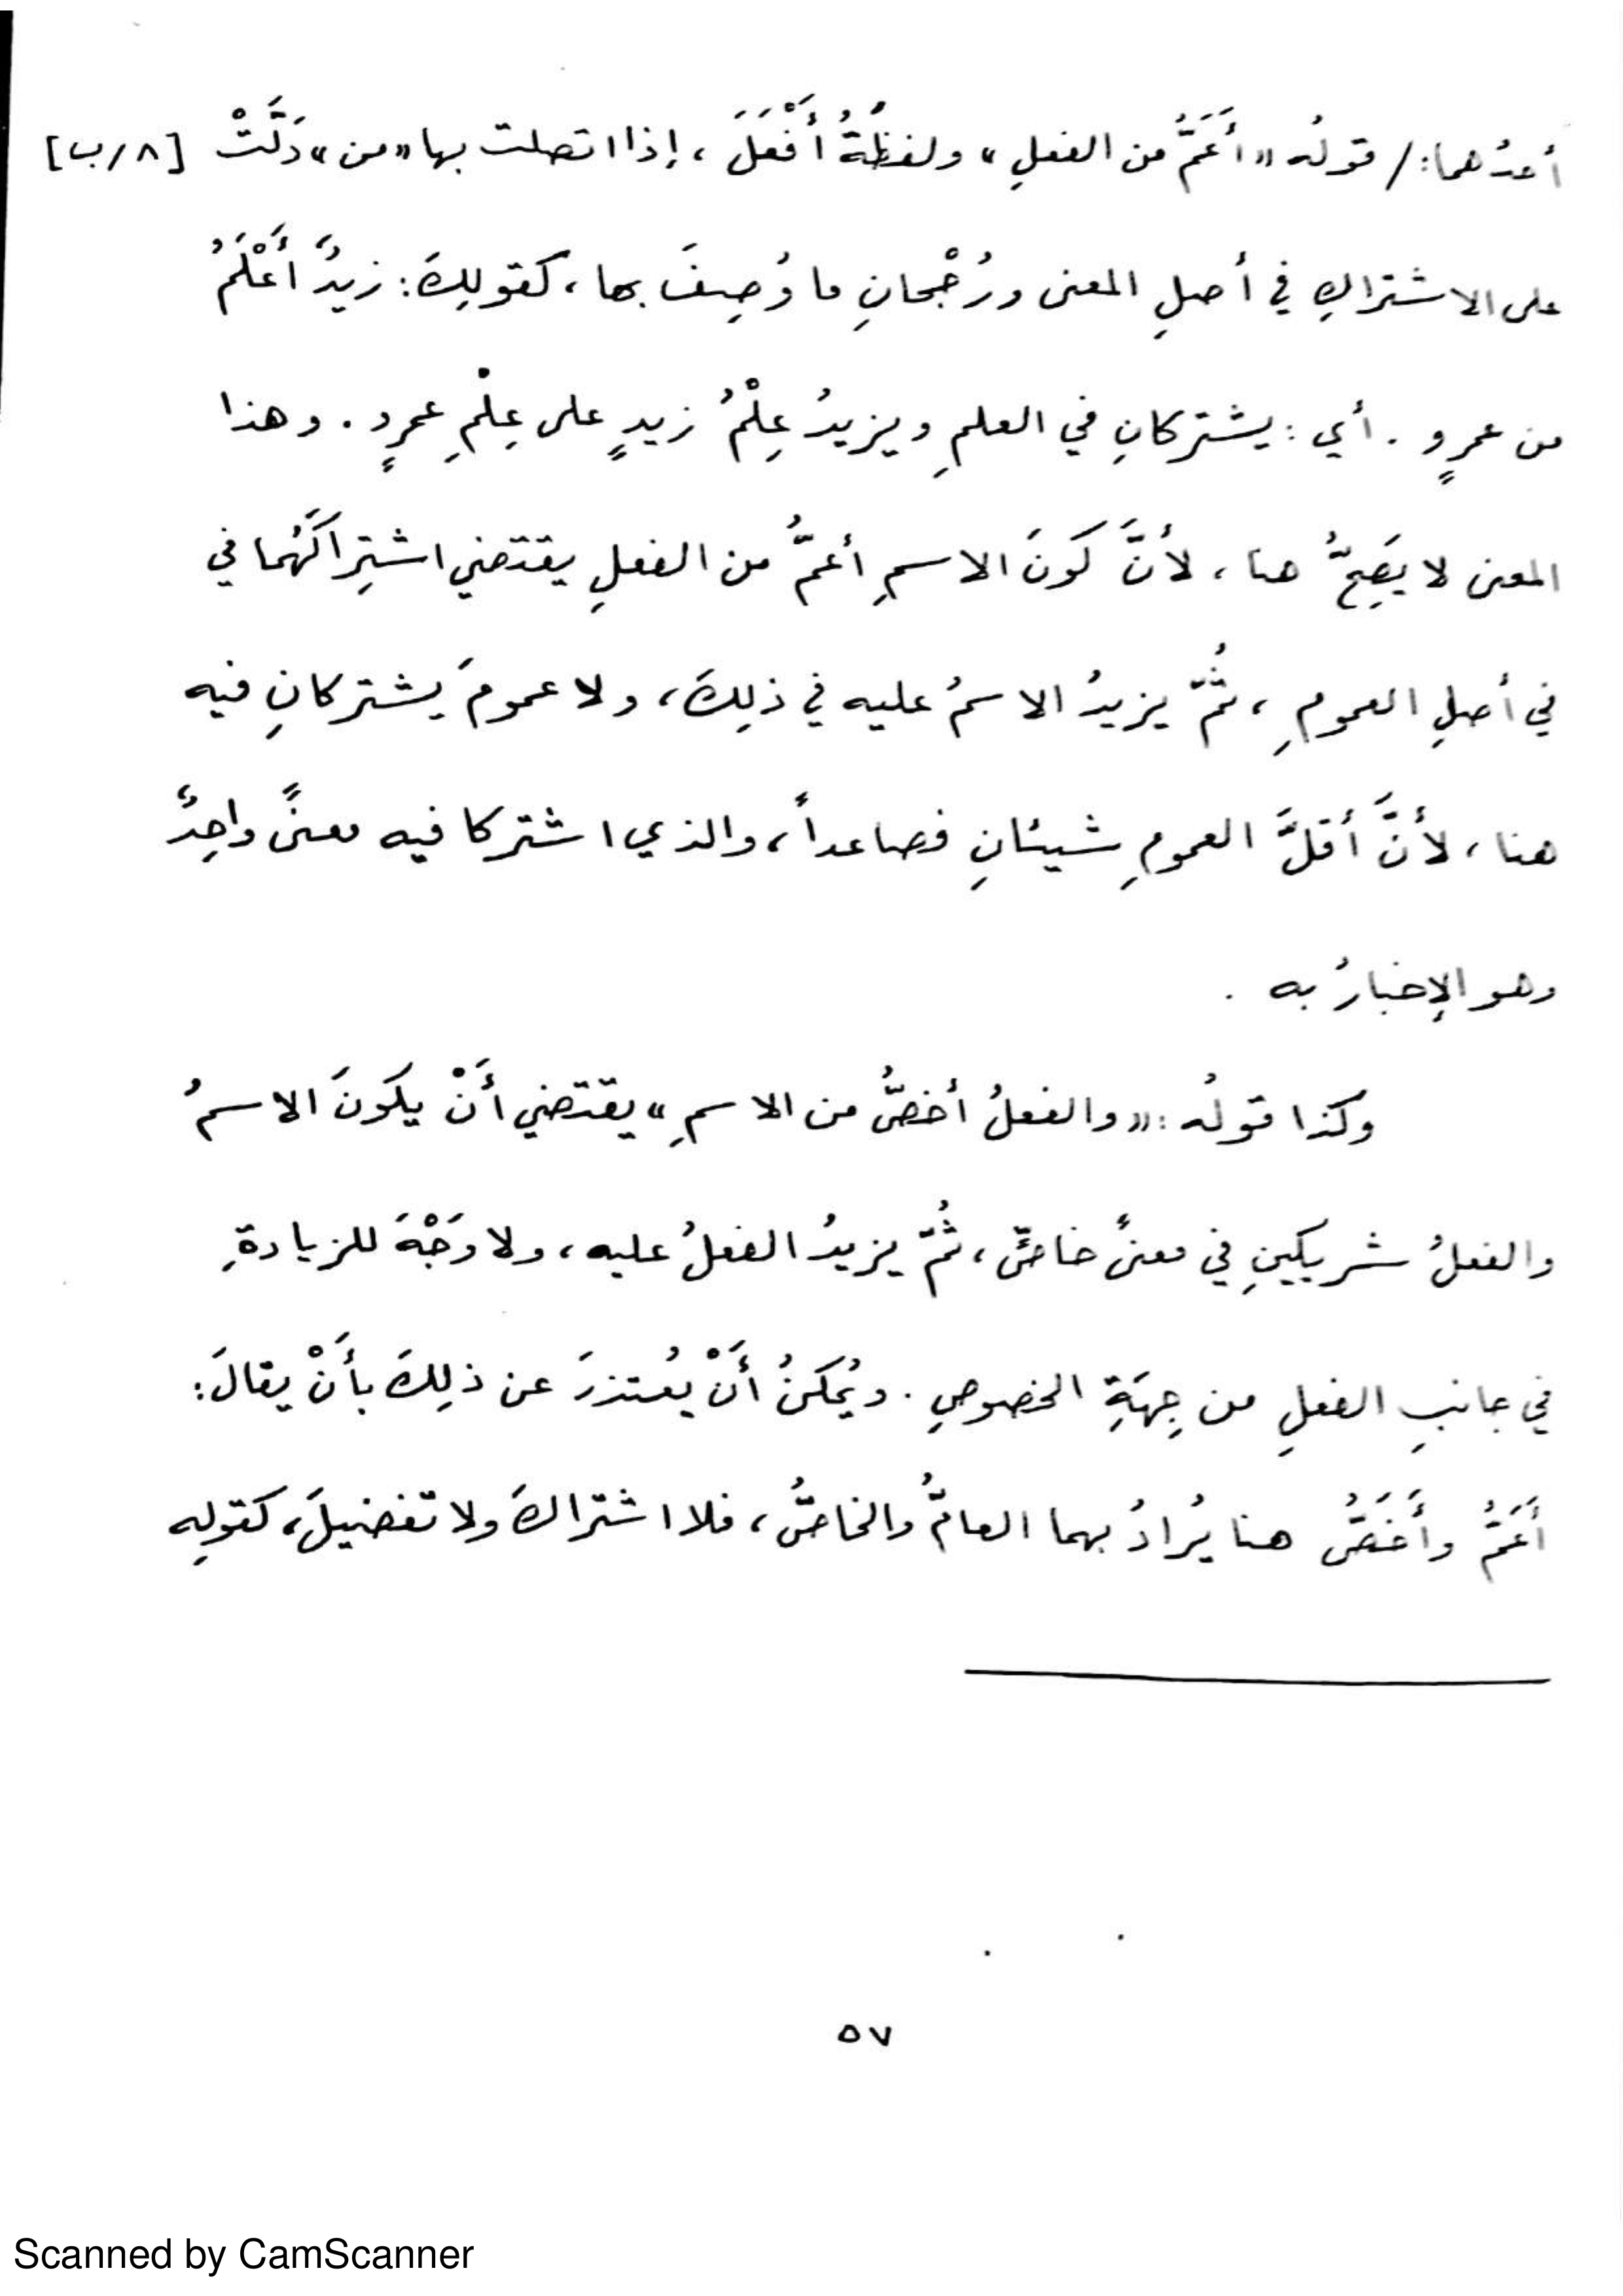 أحدُهما: / قولُه «أَعَمُّ من الفعلِ» ولفظةُ أَفْعَلَ، إذا اتصلت بها «من» دَلَّتْ [٨/ب]
على الاشتراكِ في أصلِ المعنى ورُجْحانِ ما وُصِفَ بها، كقولِكَ: زيدٌ أَعْلَمُ
من عمرٍو. أي: يشتركانِ في العلمِ ويزيدُ عِلْمُ زيدٍ على عِلْمِ عمرٍو. وهذا
المعنى لا يَصِحُّ هنا، لأنَّ كَونَ الاسمِ أعمَّ من الفعلِ يقتضي اشتِراكَهُما في
في أصلِ العمومِ، ثُمَّ يزيدُ الاسمُ عليه في ذلِكَ، ولا عمومَ يشتركانِ فيه
هنا، لأنَّ أقلَّ العمومِ شيئانِ فصاعداً، والذي اشتركا فيه معنىً واحِدٌ
وهو الإخبارُ به.
وكذا قولُه: «والفعلُ أخصُّ من الاسمِ» يقتضي أَنْ يكونَ الاسمُ
والفعلُ شريكينِ في معنىً خاصٍّ، ثُمَّ يزيدُ الفعلُ عليه، ولا وَجْهَ للزيادةِ
في جانبِ الفعلِ من جِهَةِ الخصوصِ. ويُمكنُ أَنْ يُعتذرَ عن ذلِكَ بأَنْ يقالَ:
أَعَمُّ وأَخَصُّ هنا يُرادُ بهما العامُّ والخاصُّ، فلا اشتراكَ ولا تفضيلَ، كقولِه
٥٧
Scanned by CamScanner